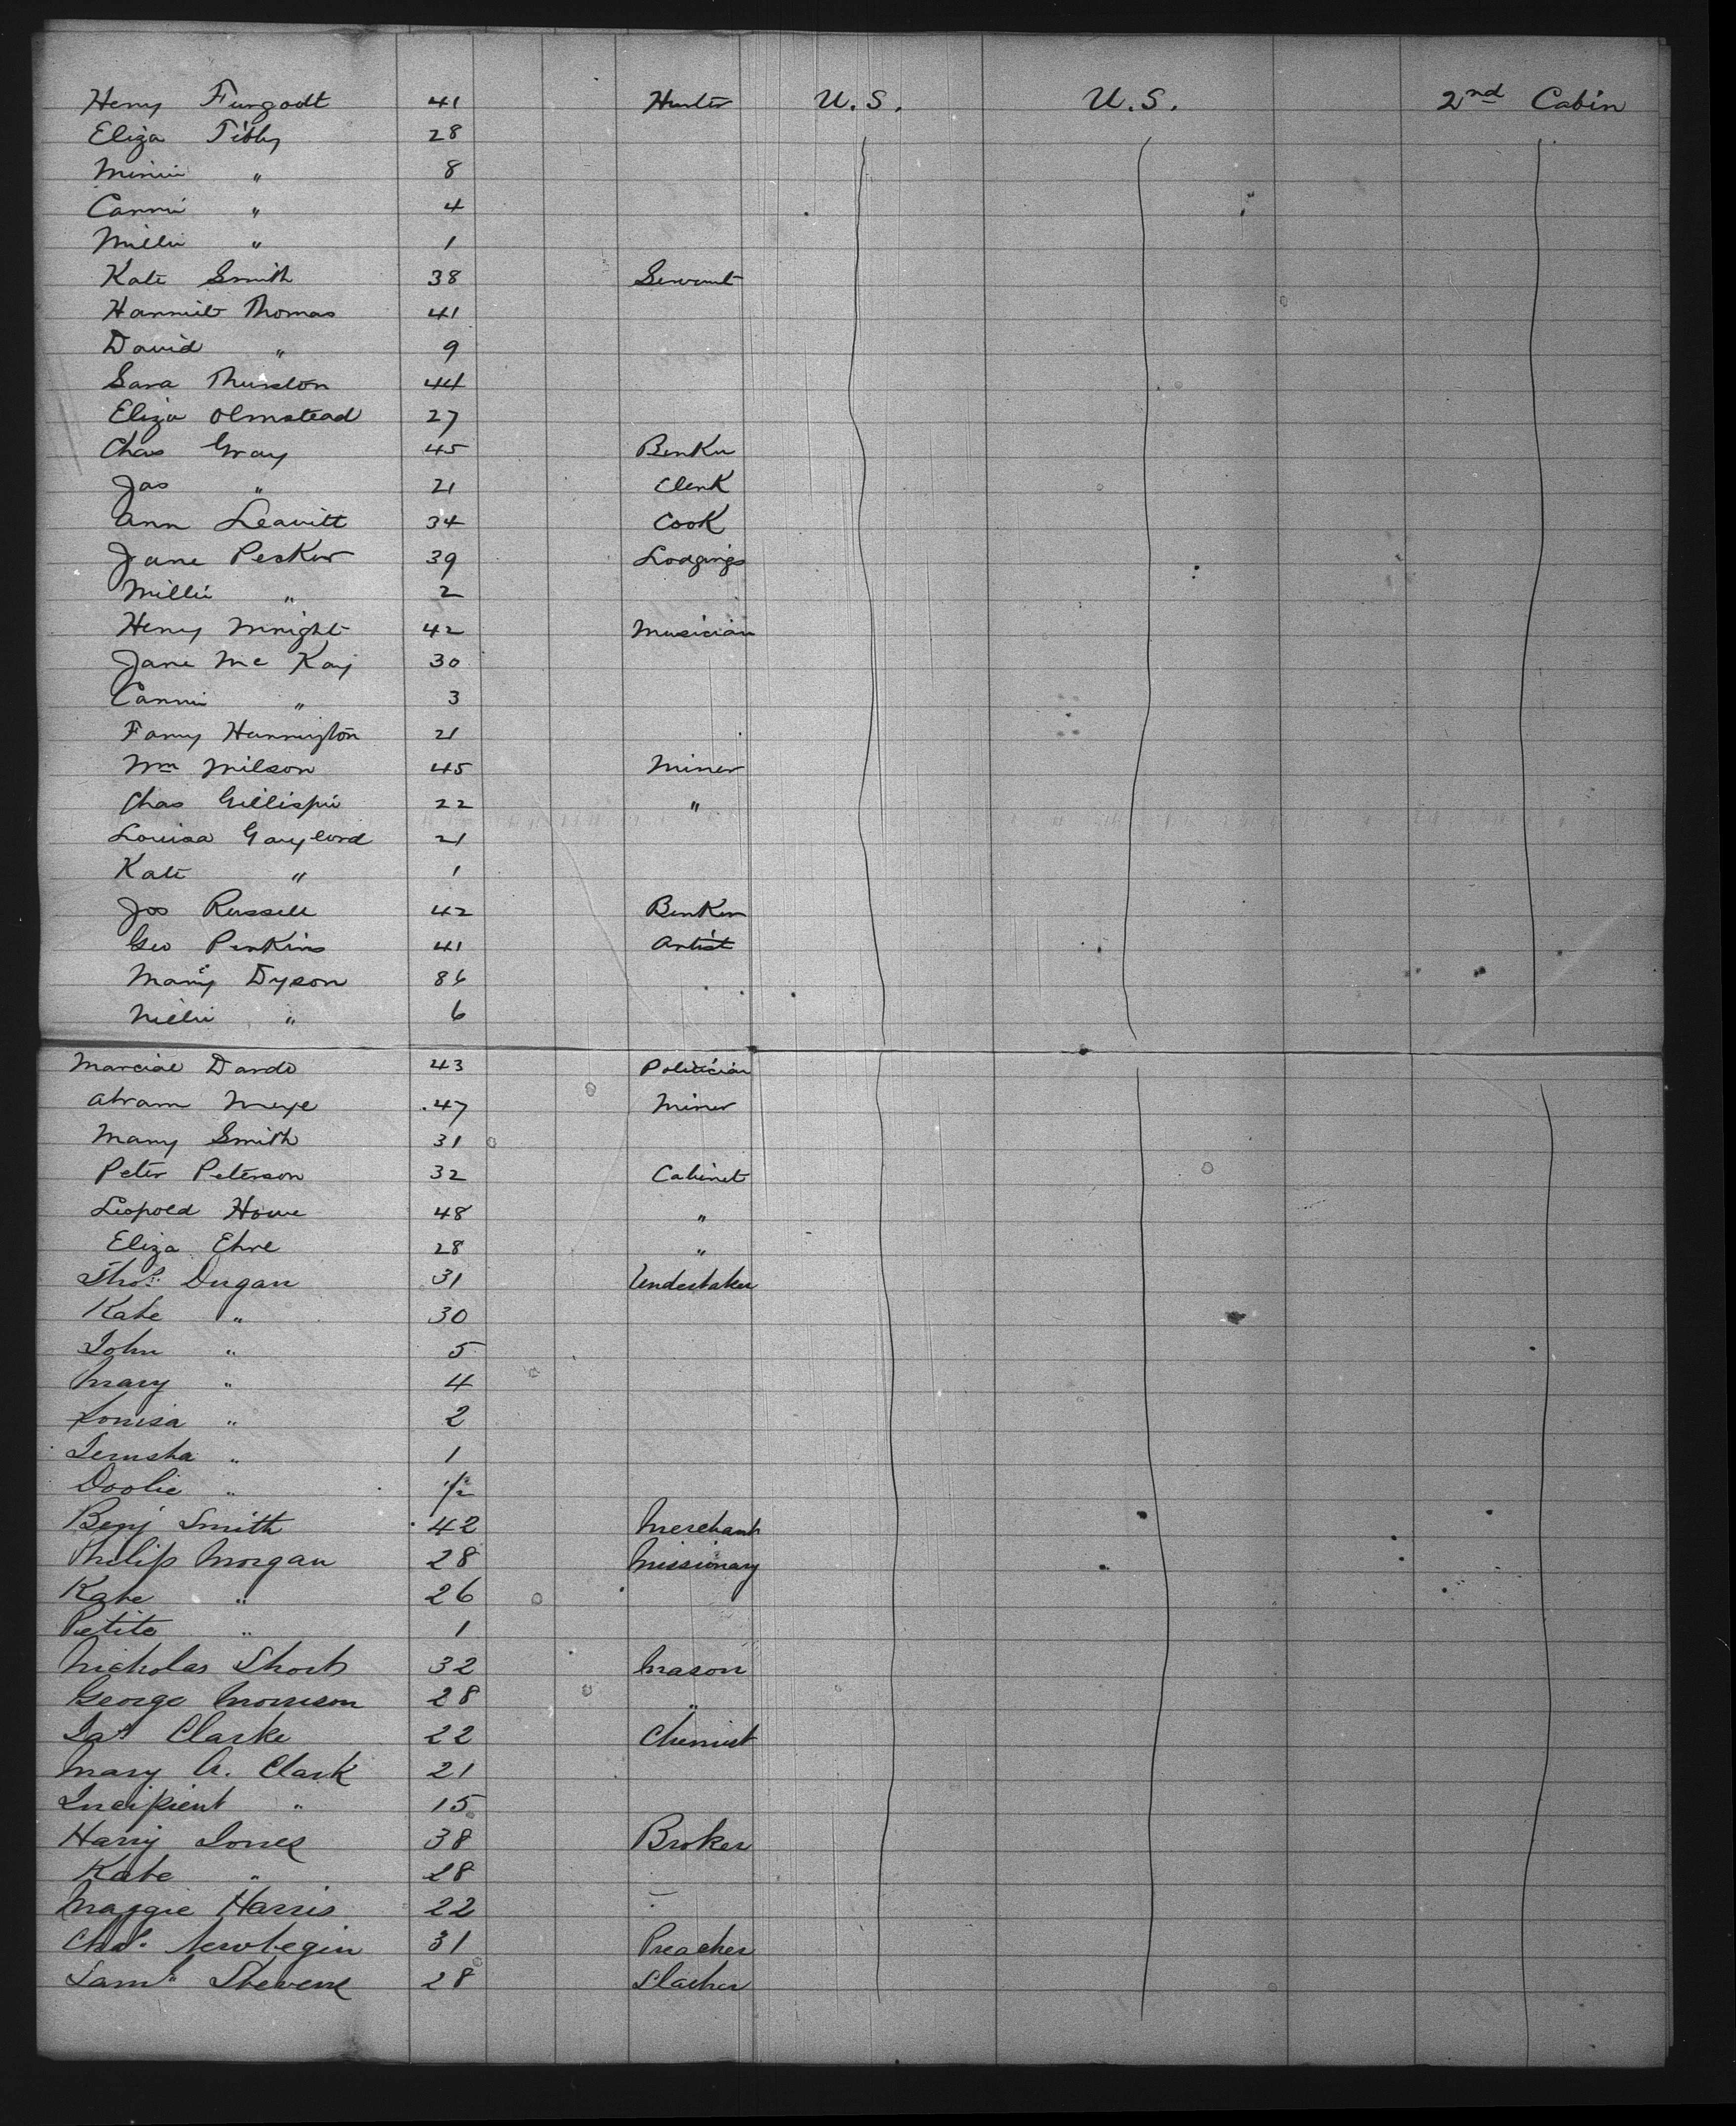 Henry Furgodt 41 Hunter U.S. U.S. 2nd Cabin
Eliza Tibby 28
Minnie " 8
Cannie " 4
Millie " 1
Kate Smith 38 Servant
Harriet Thomas 41
David " 9
Sara Thurston 44
Eliza Olmstead 27
Chas Gray 45 Banker
Jas " 21 Clerk
Ann Leavitt 34 Cook
Jane 39 Lodgings
Millie " 2
Henry Wright 42 Musician
Jane Mc Kay 30
Cannie " 3
Fanny Hannington 21
Wm Wilson 45 Miner
Chas Gillispie 22 "
Louisa Gaylord 21
Kate " 1
Jos Russell 42 Banker
Geo Perkins 41 Artist
Mary Dyson 86
Nellie " 6
Marcial Dardo 43 Politician
Abram 47 Miner
Mary Smith 31
Peter Peterson 32 Cabinet
Leopold Howe 48 "
Eliza 28 "
Thos. Dugan 31 Undertaker
Kate " 30
John " 5
Mary " 4
Louisa " 2
Jerusha " 1
Doolie " 1/2
Benj Smith 42 Merchant
Philip Morgan 28 Missionary
Kate " 26
Petite " 1
Nicholas Short 32 Mason
George Morrison 28 "
Jas Clarke 22 Chemist
Mary A. Clark 21
Incipient " 15
Harry Jones 38 Broker
Kate " 28
Maggie Harris 22
Chas. Newbegin 31 Preacher
Saml Stevens 28